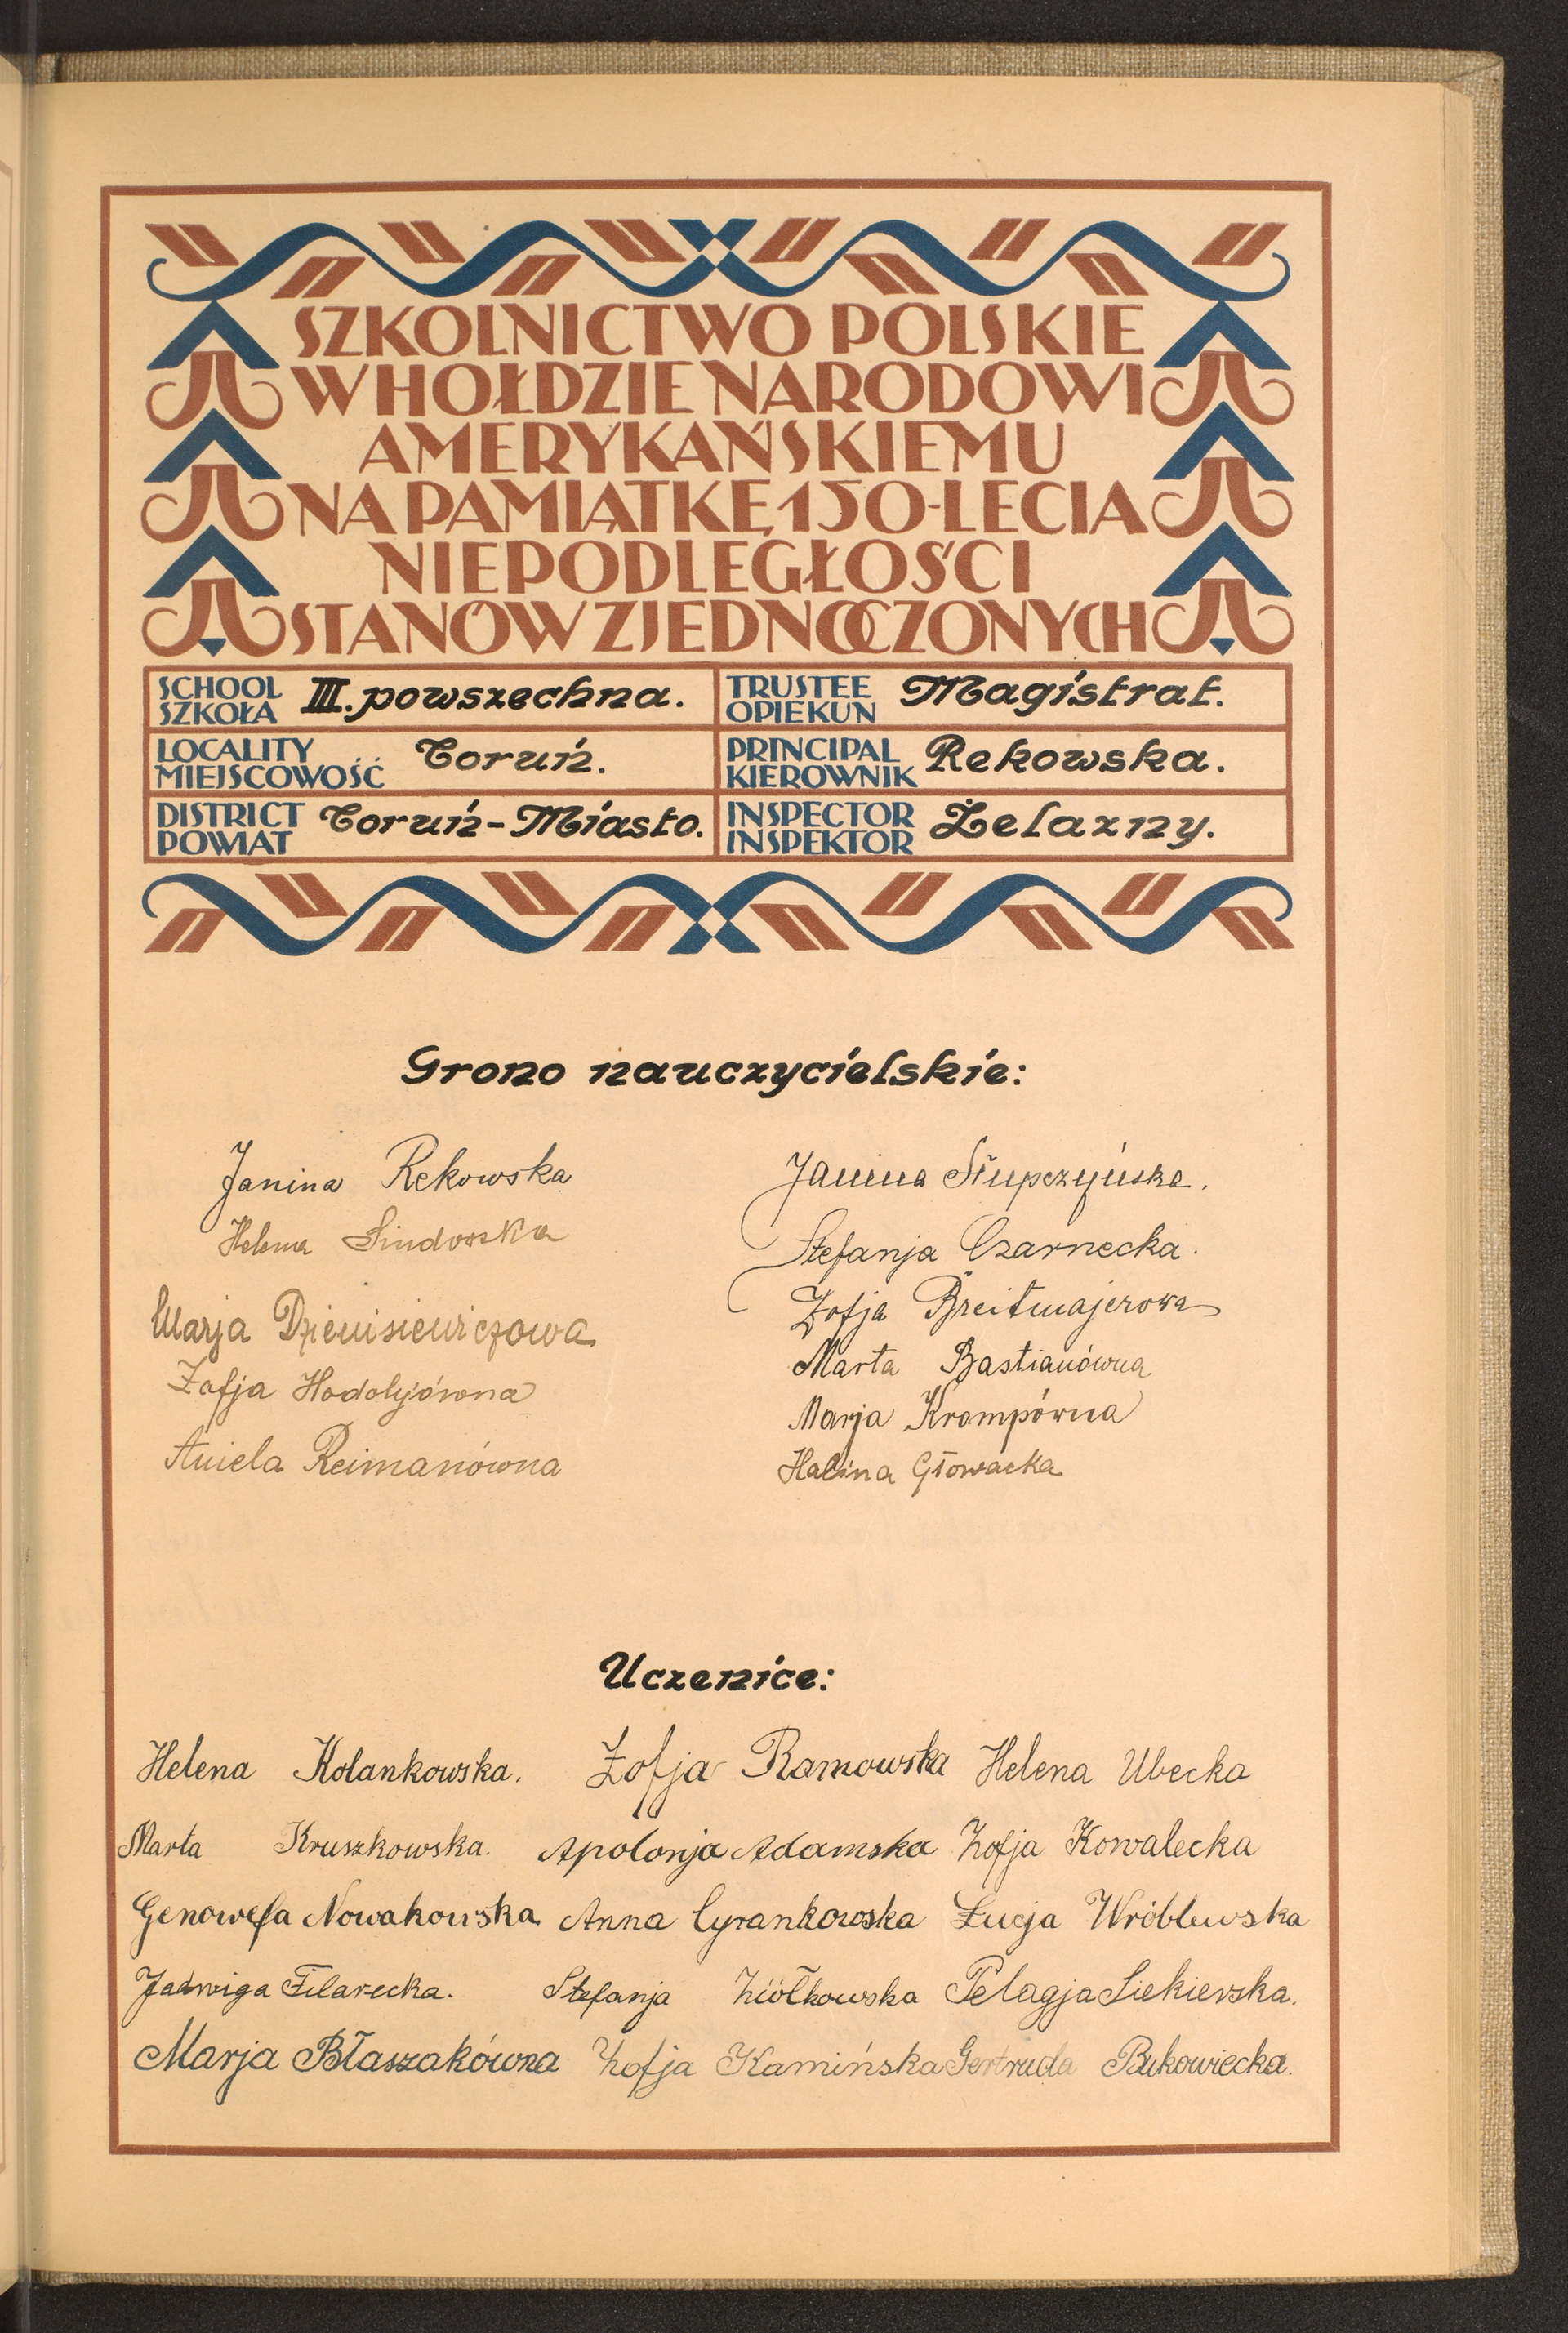 SZKOLNICTWO POLSKIE
W HOŁDZIE NARODOWI
AMERYKAŃSKIEMU
NA PAMIĄTKĘ 150-LECIA
NIEPODLEGŁOŚCI
STANÓW ZJEDNOCZONYCH
SCHOOL
SZKOŁA III. powszechna.
TRUSTEE
OPIEKUN Magistrat.
LOCALITY
MIEJSCOWOŚĆ Toruń.
PRINCIPAL
KIEROWNIK Rekowska.
DISTRICT
POWIAT Toruń-Miasto.
INSPECTOR
INSPEKTOR Żelazny.
Grono nauczycielskie:
Janina Rekowska
Helena
Marja Dzienisiewiczowa
Zofja Hodolyjówna
Aniela Reimanówna
Janina Słupczyńska.
Stefanja Czarnecka.
Zofja Breitmajerowa
Marta Bastianówna
Marja Krampówna
Halina Głowacka
Uczenice:
Helena Kolankowska. Zofja Ramowska Helena Ubecka
Marta Kruszkowska. Apolonja Adamska Zofja Kowalecka
Genowefa Nowakowska Anna Cyrankowska Łucja Wróblewska
Jadwiga Filarecka. Stefanja Ziółkowska Pelagja Siekierska.
Marja Błaszakówna Zofja Kamińska Gertruda Bukowiecka.